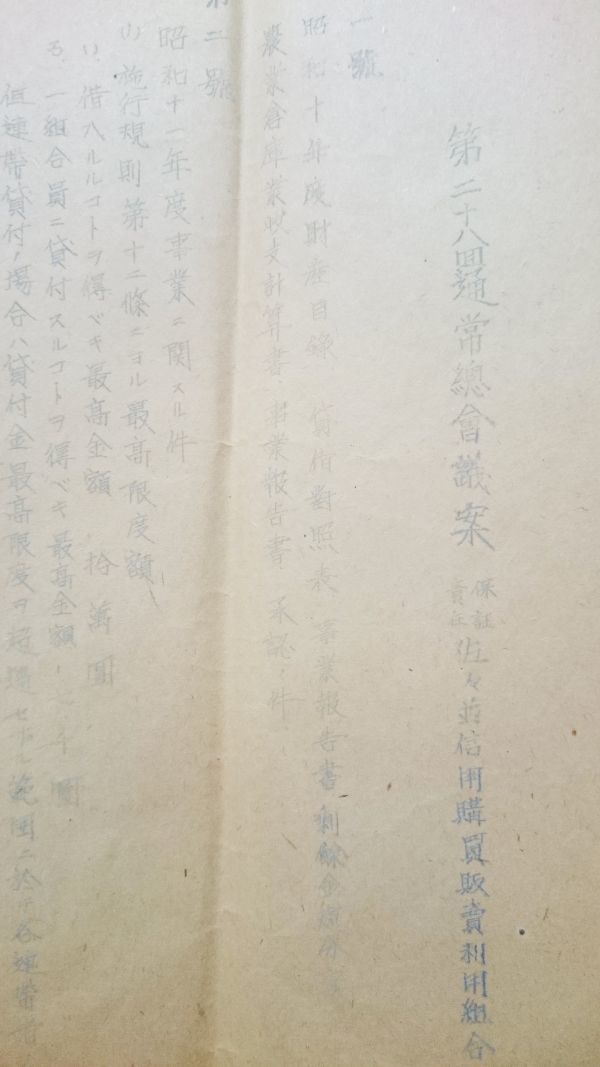 第二十八回通常總會議案 保証責任 佐々並信用購買販賣利用組合
一號
昭和十年度財産目録、貸借對照表、事業報告書、剰餘金處分
農業倉庫業收支計算書、事業報告書、承認ノ件
第二號
昭和十一年度事業ニ関スル件
(1) 施行規則第十二條ニヨル最高限度額
い、借入ルルコトヲ得ベキ最高金額 拾萬圓
ろ、一組合員ニ貸付スルコトヲ得ベキ最高金額 千圓
但連帯貸付ノ場合ハ貸付金最高限度ヲ超過セザル範囲ニ於テ各連帯者